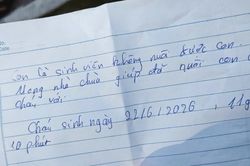 on là sinh viên không nuôi được con.
Mong nhà chùa giúp đỡ nuôi con
cháu với
Cháu sinh ngày 22/6/2026, 11g
10 phút